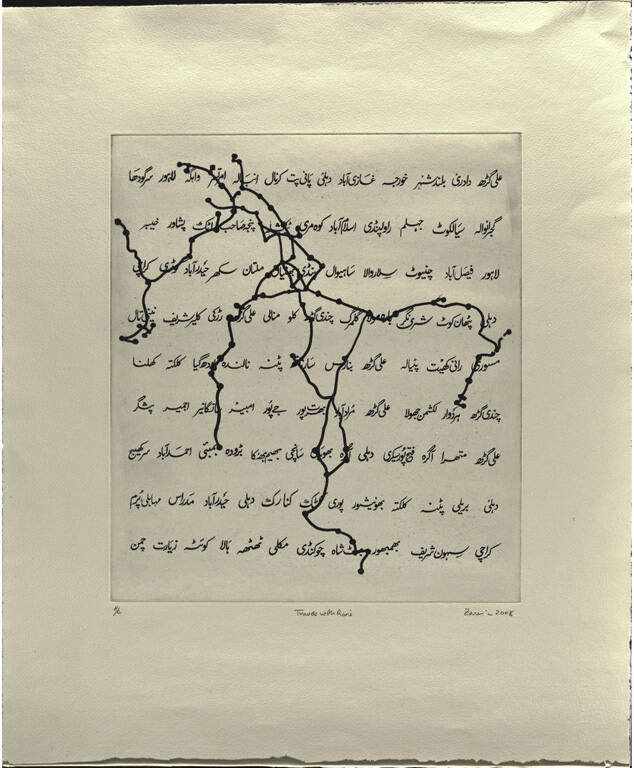 علی گڑھ دادری بلند شہر خورجہ غازی آباد دہلی پانی پت کرنال انبالہ امرتسر واہگہ لاہور سرگودھا
گجرانوالہ سیالکوٹ جہلم راولپنڈی اسلام آباد کوہ مری پنجہ صاحب اٹک پشاور خیبر
لاہور فیصل آباد چنیوٹ سلاروالا ساہیوال ملتان سکھر حیدرآباد کوٹری کراچی
دہلی پٹھان کوٹ شری نگر گلمرگ چندی گڑھ کلو منالی علی گڑھ رڑکی کلیر شریف نینی تال
مسوری رانی کھیت پٹیالہ علی گڑھ بنارس سارناتھ پٹنہ نالندہ بودھ گیا کلکتہ کھلنا
چندی گڑھ ہردوار لکشمن جھولا علی گڑھ مرادآباد بھرت پور جے پور امبیر بیکانیر اجمیر پشکر
علی گڑھ متھرا آگرہ فتح پور سیکری دہلی آگرہ بھوپال سانچی بھیم بیٹھکا بڑودہ بمبئی احمدآباد سرکھیج
دہلی بریلی پٹنہ کلکتہ بھونیشور پوری کٹک کنارک دہلی حیدرآباد مدراس مہابلی پُرم
کراچی سیہون شریف بھمبھور بھٹ شاہ چوکنڈی مکلی ٹھٹھہ ہالا کوئٹہ زیارت چمن
Travels with Rani
Zarina 2008